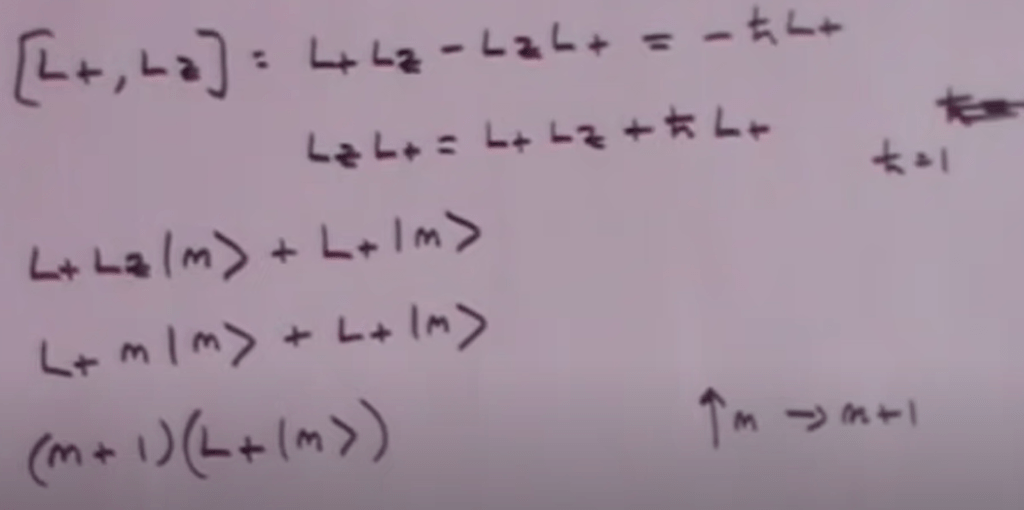 [L+, Lz] = L+ Lz - Lz L+ = - ħ L+
Lz L+ = L+ Lz + ħ L+
ħ = 1
L+ Lz |m> + L+ |m>
L+ m |m> + L+ |m>
(m + 1)(L+ |m>)
↑ m → m+1